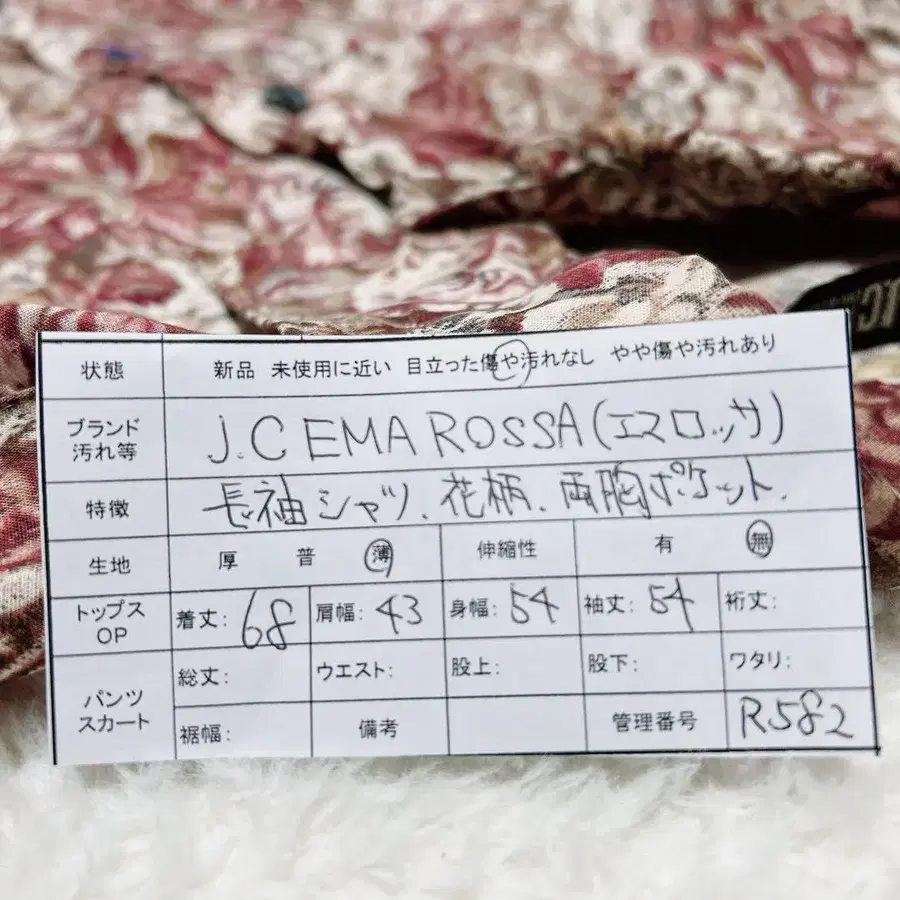 J.C
状態 新品 未使用に近い 目立った傷や汚れなし やや傷や汚れあり
ブランド
汚れ等
J.C EMA ROSSA(エスロッサ)
特徴 長袖シャツ、花柄、両胸ポケット、
生地 厚 普 薄 伸縮性 有 無
トップス
OP
着丈: 68 肩幅: 43 身幅: 54 袖丈: 54 裄丈:
パンツ
スカート
総丈: ウエスト: 股上: 股下: ワタリ:
裾幅: 備考 管理番号 R582